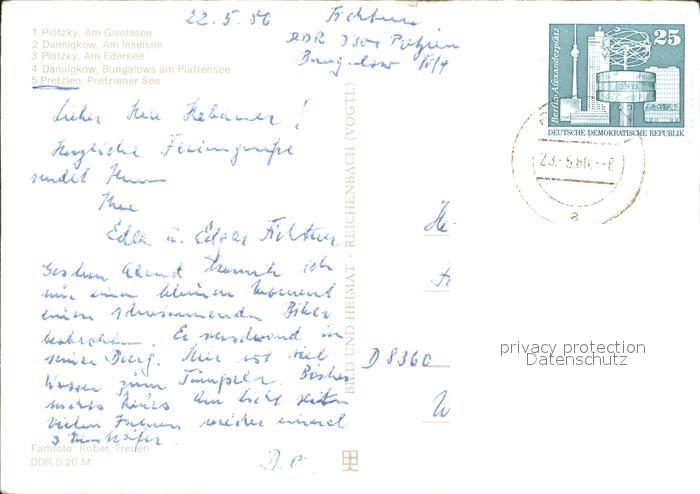 22.5.86 Fichtner
DDR 3301 Pretzien
Bungalow
1 Plötzky, Am Gisolasee
2 Dannigkow, Am Inselsee
3 Plötzky, Am Edersee
4 Dannigkow, Bungalows am Plattensee
5 Pretzien, Pretziener See
Lieber Herr Habauer!
Herzliche Feriengrüße
sendet Ihnen
Ihre
Edla u. Edgar Fichtner
Gestern Abend konnte ich
nur einen kleinen Moment
einen schwimmenden Biber
beobachten. Er verschwand in
seiner Burg. Hier ist viel
Wasser zum Tümpeln. Bisher
nichts
vielen wieder einmal
D. O.
Farbfoto: Kober, Treuen
DDR 0,20 M
BILD UND HEIMAT · REICHENBACH (VOGTL)
Berlin-Alexanderplatz
25
DEUTSCHE DEMOKRATISCHE REPUBLIK
23.-5.86.--8
a
He-
D 8360
W
privacy protection
Datenschutz